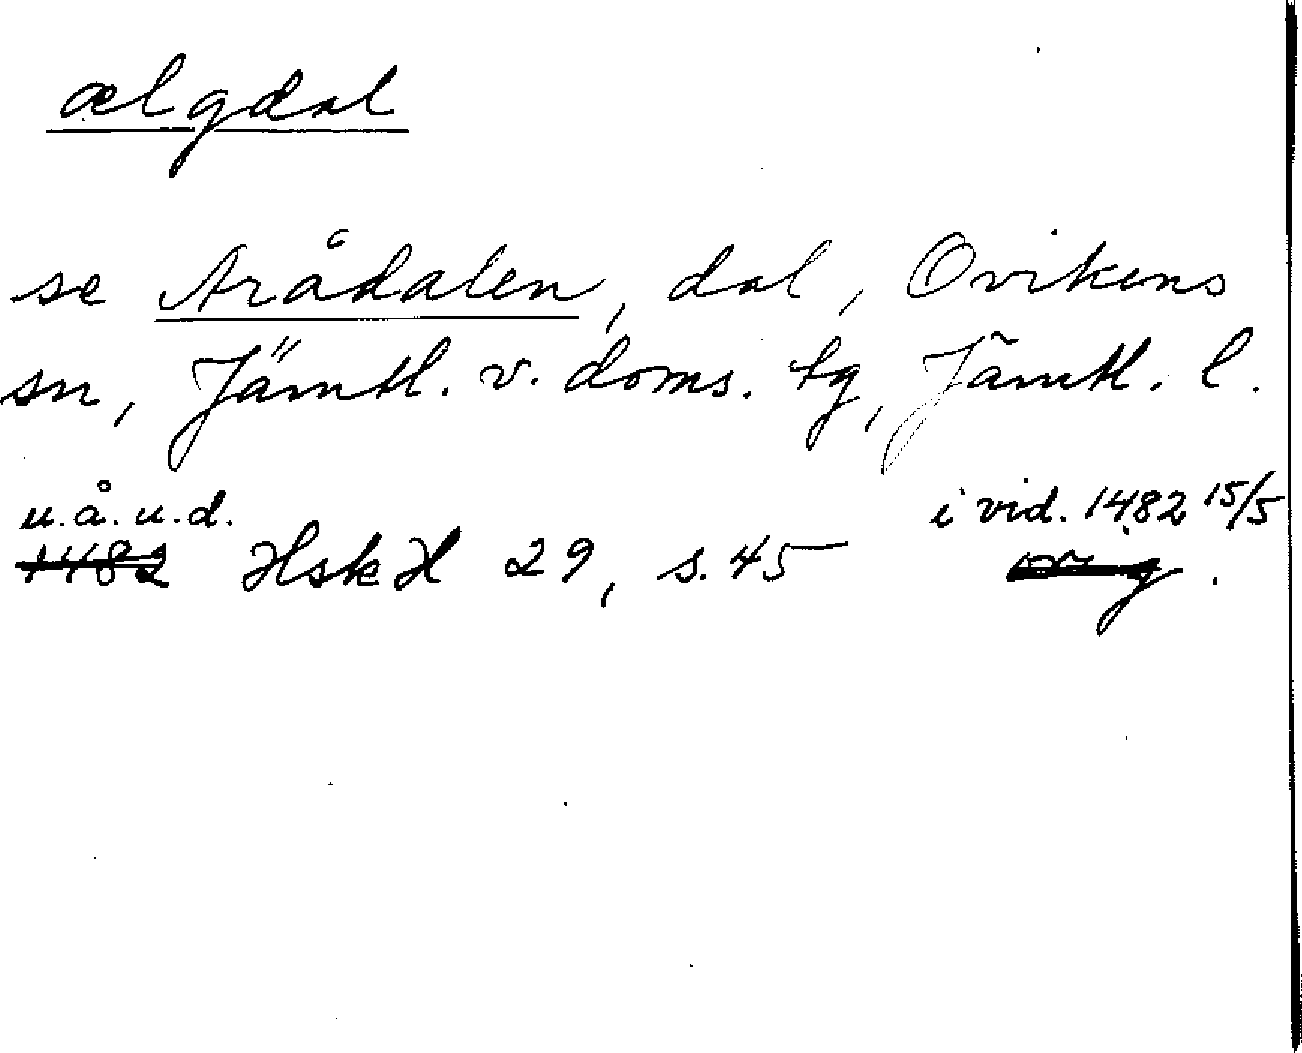 ælgdal
se Arådalen, dal, Ovikens
sn, Jämtl. v. doms. tg, Jämtl. l.
u.å.u.d. i vid. 1482 15/5
1482 HskH 29, s. 45 orig.